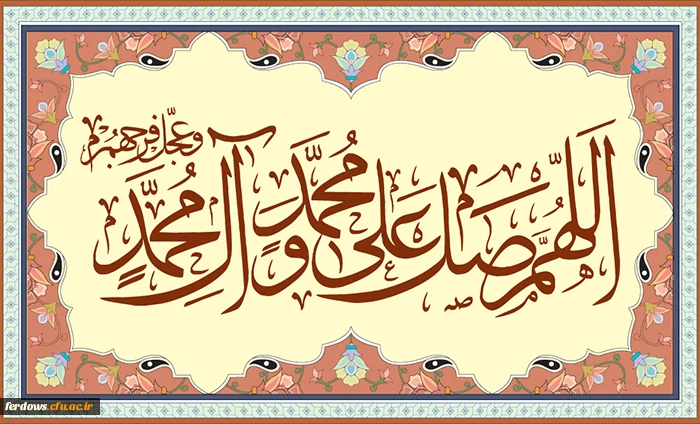 اَللّٰهُمَّ صَلِّ عَلیٰ مُحَمَّدٍ وَ آلِ مُحَمَّدٍ
وَ عَجِّل فَرَجَهُم
ferdows.cfu.ac.ir